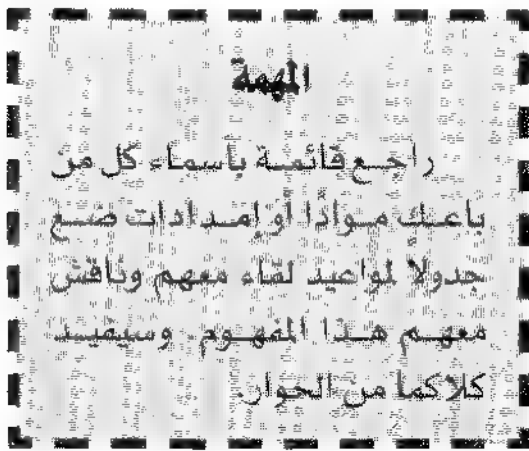 المهمة
راجع قائمة بأسماء كل من
باعك موادًا أو إمدادات ضع
جدولاً لمواعيد لقاء معهم وناقش
معهم هذا المفهوم. وسيفيد
كلاكما من الحوار.